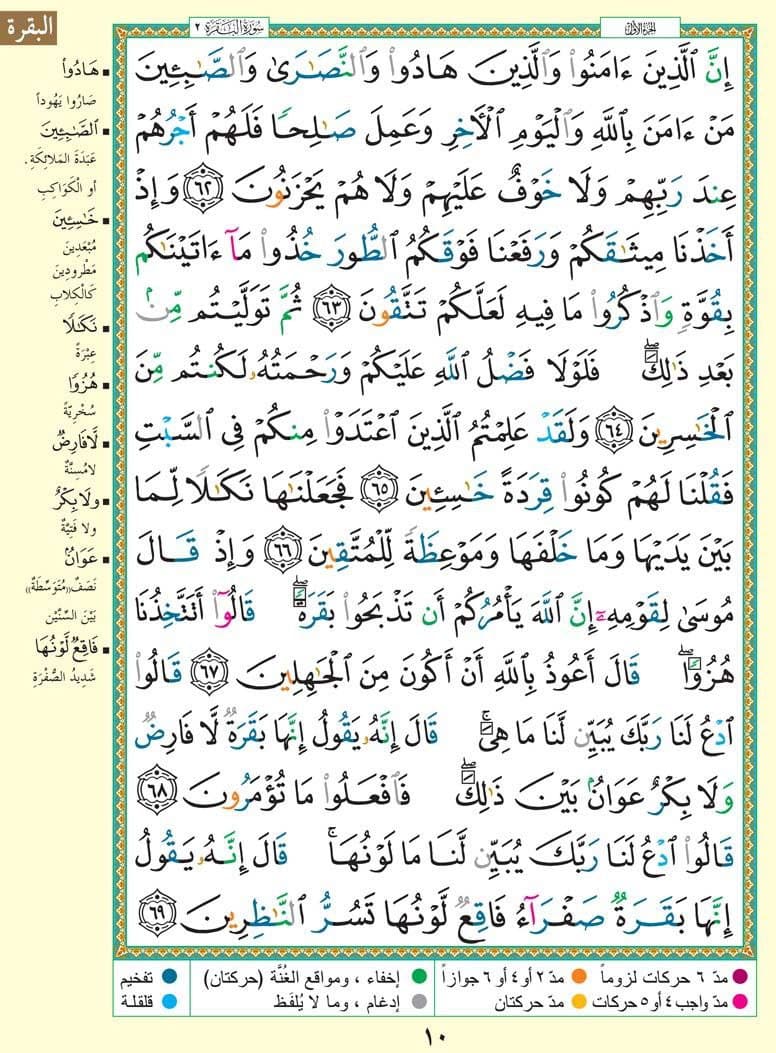 البقرة
الجزء الأول
سورة البقرة ٢
إِنَّ ٱلَّذِينَ ءَامَنُوا۟ وَٱلَّذِينَ هَادُوا۟ وَٱلنَّصَـٰرَىٰ وَٱلصَّـٰبِـِٔينَ
مَنْ ءَامَنَ بِٱللَّهِ وَٱلْيَوْمِ ٱلْـَٔاخِرِ وَعَمِلَ صَـٰلِحًا فَلَهُمْ أَجْرُهُمْ
عِندَ رَبِّهِمْ وَلَا خَوْفٌ عَلَيْهِمْ وَلَا هُمْ يَحْزَنُونَ ٦٢ وَإِذْ
أَخَذْنَا مِيثَـٰقَكُمْ وَرَفَعْنَا فَوْقَكُمُ ٱلطُّورَ خُذُوا۟ مَآ ءَاتَيْنَـٰكُم
بِقُوَّةٍ وَٱذْكُرُوا۟ مَا فِيهِ لَعَلَّكُمْ تَتَّقُونَ ٦٣ ثُمَّ تَوَلَّيْتُم مِّنۢ
بَعْدِ ذَٰلِكَ ۖ فَلَوْلَا فَضْلُ ٱللَّهِ عَلَيْكُمْ وَرَحْمَتُهُۥ لَكُنتُم مِّنَ
ٱلْخَـٰسِرِينَ ٦٤ وَلَقَدْ عَلِمْتُمُ ٱلَّذِينَ ٱعْتَدَوْا۟ مِنكُمْ فِى ٱلسَّبْتِ
فَقُلْنَا لَهُمْ كُونُوا۟ قِرَدَةً خَـٰسِـِٔينَ ٦٥ فَجَعَلْنَـٰهَا نَكَـٰلًا لِّمَا
بَيْنَ يَدَيْهَا وَمَا خَلْفَهَا وَمَوْعِظَةً لِّلْمُتَّقِينَ ٦٦ وَإِذْ قَالَ
مُوسَىٰ لِقَوْمِهِۦٓ إِنَّ ٱللَّهَ يَأْمُرُكُمْ أَن تَذْبَحُوا۟ بَقَرَةً ۖ قَالُوٓا۟ أَتَتَّخِذُنَا
هُزُوًا ۖ قَالَ أَعُوذُ بِٱللَّهِ أَنْ أَكُونَ مِنَ ٱلْجَـٰهِلِينَ ٦٧ قَالُوا۟
ٱدْعُ لَنَا رَبَّكَ يُبَيِّن لَّنَا مَا هِىَ ۚ قَالَ إِنَّهُۥ يَقُولُ إِنَّهَا بَقَرَةٌ لَّا فَارِضٌ
وَلَا بِكْرٌ عَوَانٌۢ بَيْنَ ذَٰلِكَ ۖ فَٱفْعَلُوا۟ مَا تُؤْمَرُونَ ٦٨
قَالُوا۟ ٱدْعُ لَنَا رَبَّكَ يُبَيِّن لَّنَا مَا لَوْنُهَا ۚ قَالَ إِنَّهُۥ يَقُولُ
إِنَّهَا بَقَرَةٌ صَفْرَآءُ فَاقِعٌ لَّوْنُهَا تَسُرُّ ٱلنَّـٰظِرِينَ ٦٩
▪ هَادُوا۟
صَارُوا يَهُوداً
▪ ٱلصَّـٰبِـِٔينَ
عَبَدَةَ المَلائِكَةِ .
أو الْكَوَاكِبِ
▪ خَـٰسِـِٔينَ
مُبْعَدِينَ
مَطْرودِينَ
كَالْكِلابِ
▪ نَكَـٰلًا
عِبْرَةً
▪ هُزُوًا
سُخْرِيَّةً
▪ لَّا فَارِضٌ
لا مُسِنَّةٌ
▪ ولا بِكْرٌ
ولا فَتِيَّةٌ
▪ عَوَانٌ
نَصَفٌ«مُتَوَسِّطَةٌ»
بَيْنَ السِّنَّيْنِ
▪ فَاقِعٌ لَّوْنُهَا
شَدِيدُ الصُّفْرَةِ
مدّ ٦ حركات لزوماً ● مدّ ٢ أو ٤ أو ٦ جوازاً
مدّ واجب ٤ أو ٥ حركات ● مدّ حركتان
● إخفاء ، ومواقع الغُنَّة (حركتان)
● إدغام ، وما لا يُلفَظ
● تفخيم
● قلقلة
١٠